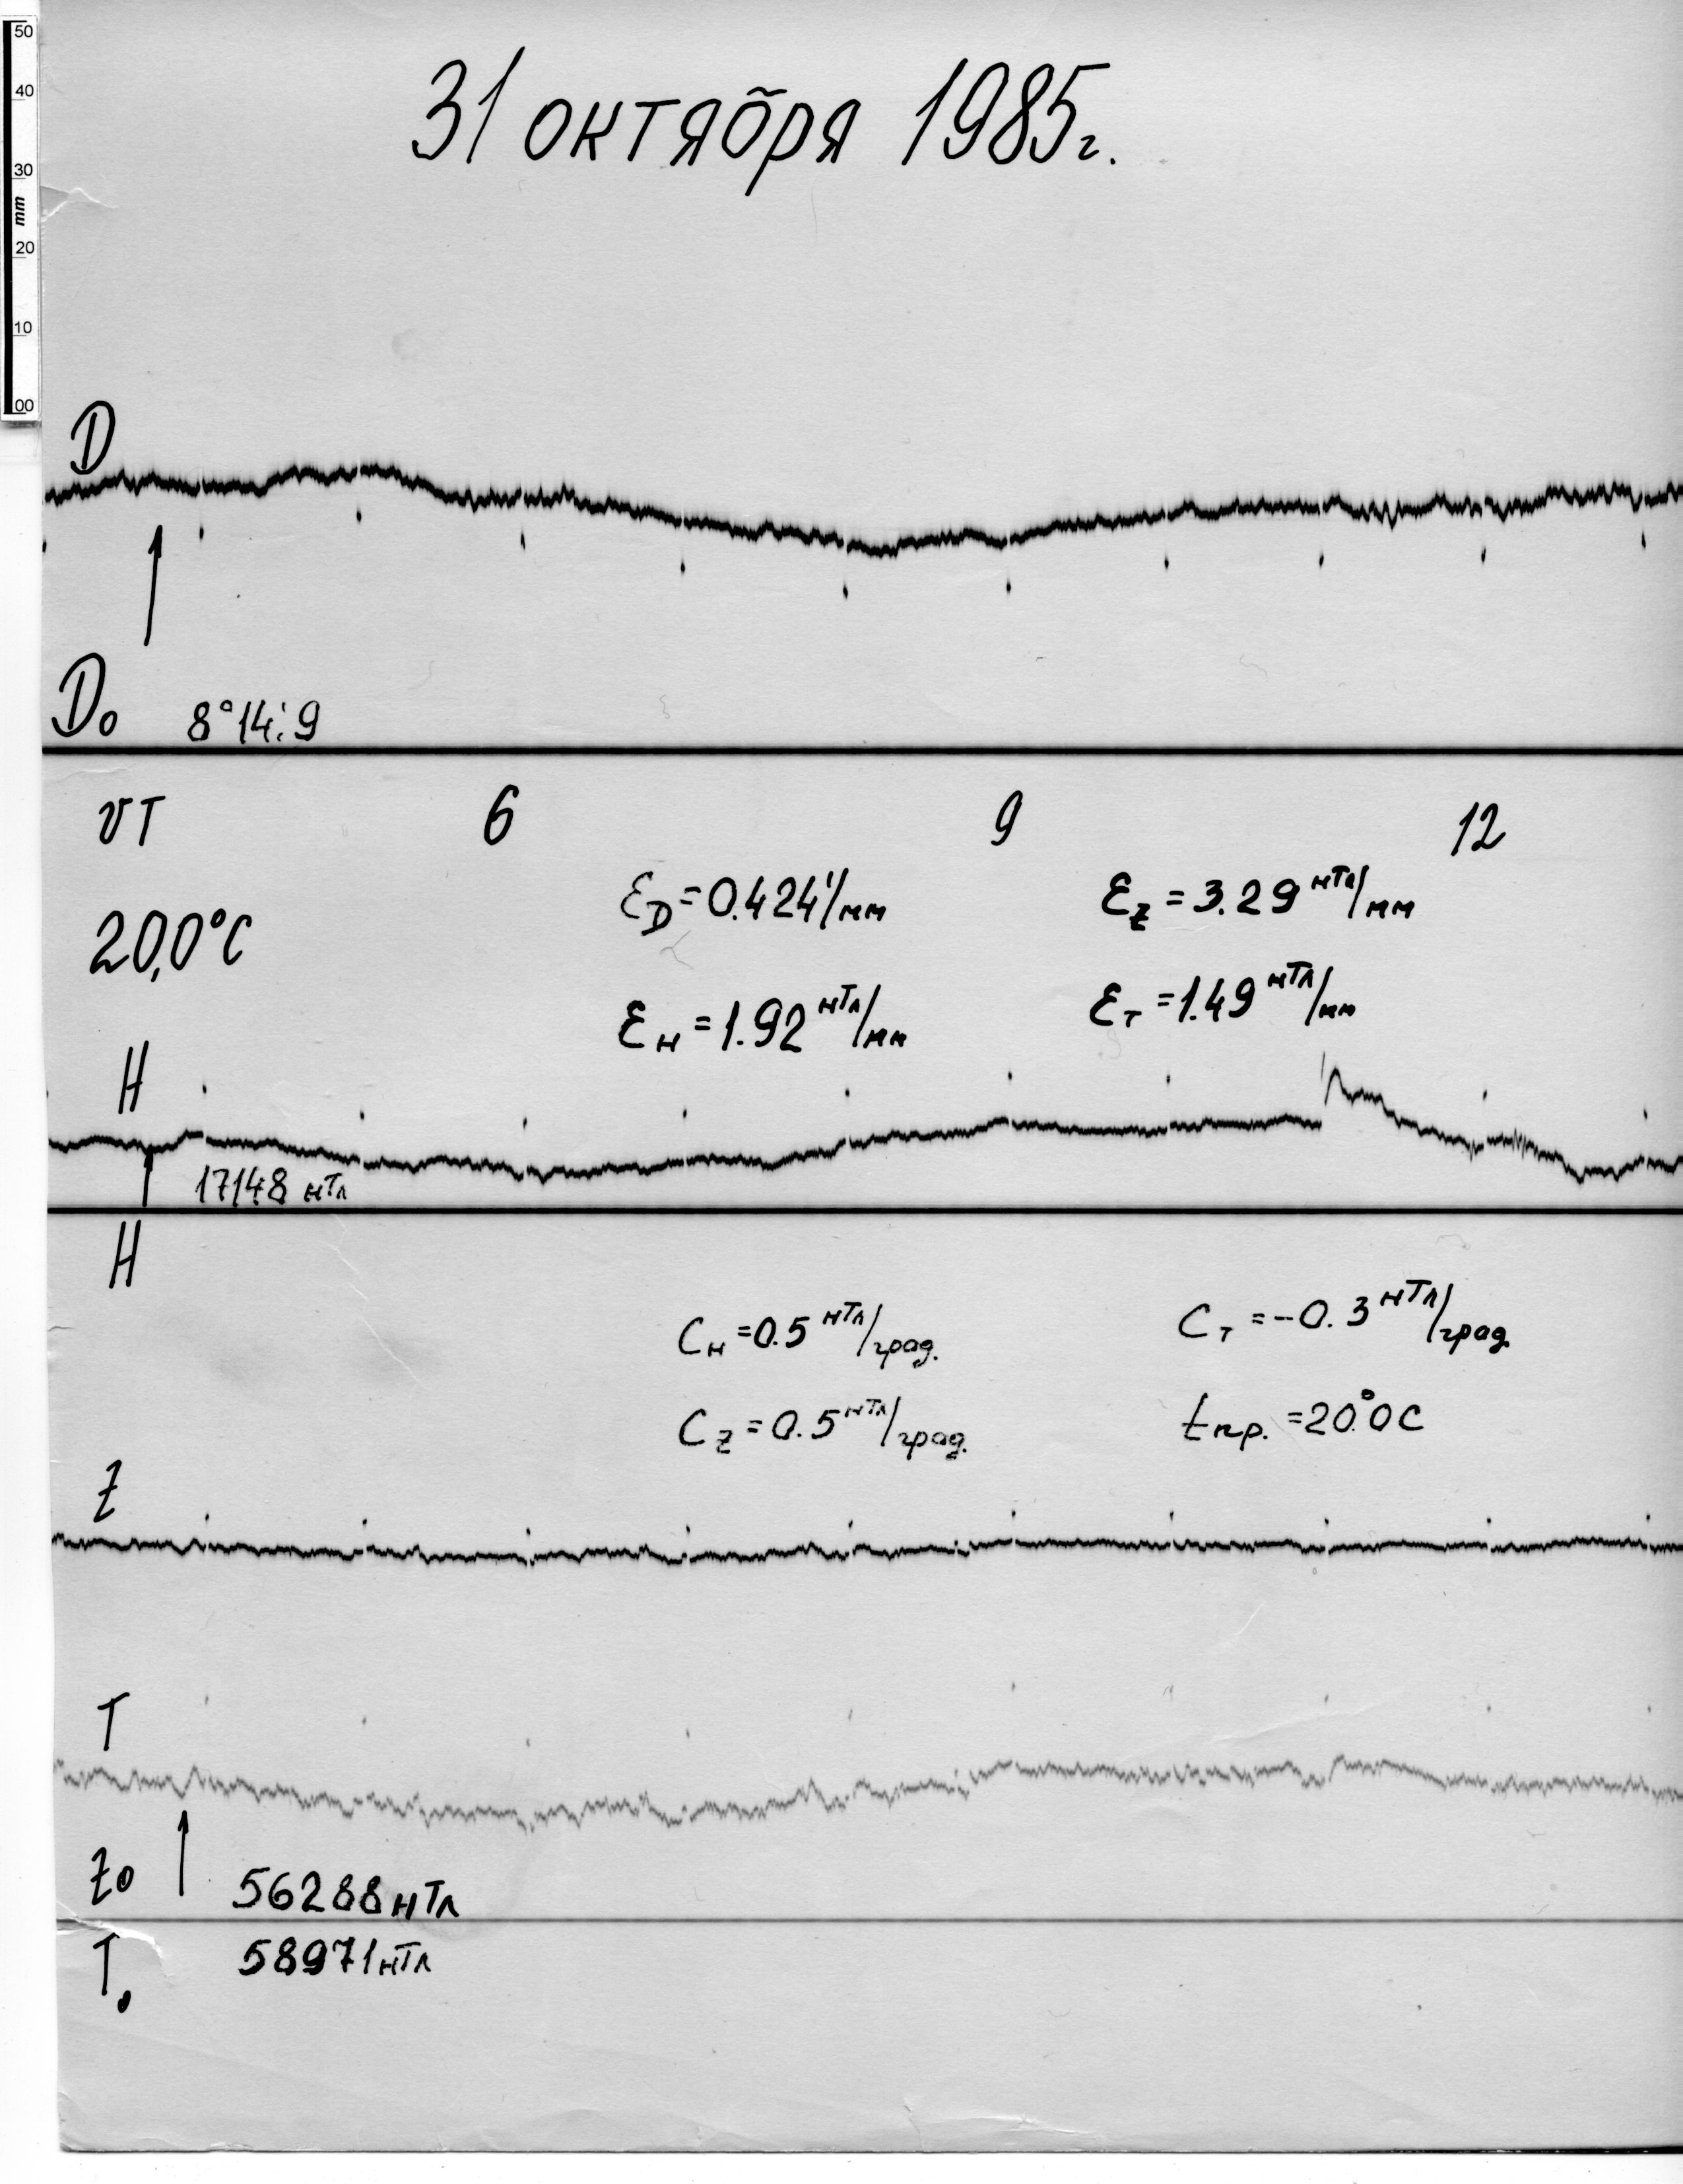 50
40
30
mm
20
10
00
31 октября 1985г.
D
D₀ 8°14.'9
UT 6 9 12
20,0°C
ℰD=0.424'/мм ℰZ=3.29 нТл/мм
ℰH=1.92 нТл/мм ℰT=1.49 нТл/мм
H
17148 нТл
H
CH=0.5 нТл/град. CT=-0.3 нТл/град.
CZ=0.5 нТл/град. tпр.=20.°0C
Z
T
Z0 56288нТл
T₀ 58971нТл